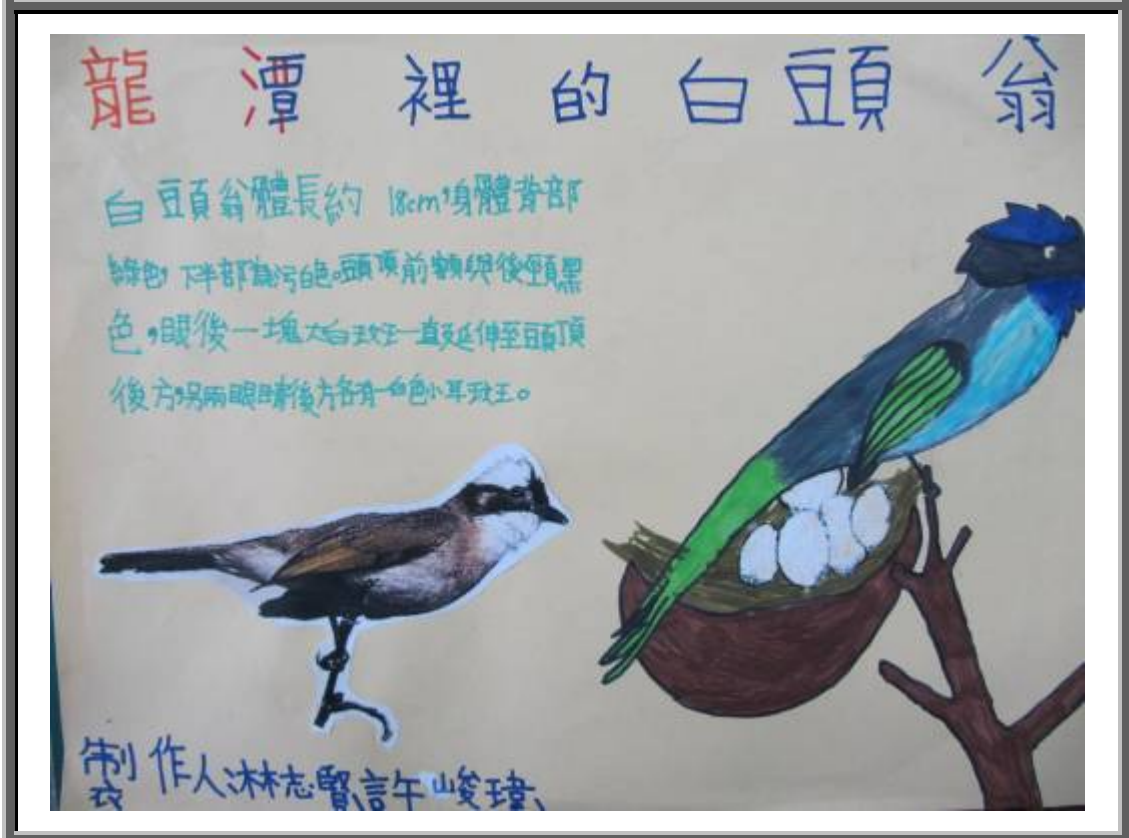 龍潭裡的白頭翁
白頭翁體長約 18cm,身體背部
綠色,下半部為污白色。頭頂前額與後頸黑
色,眼後一塊大白斑一直延伸至頭頂
後方,另兩眼睛後方各有一白色小耳斑。
製作人:林志賢、許峻瑋、